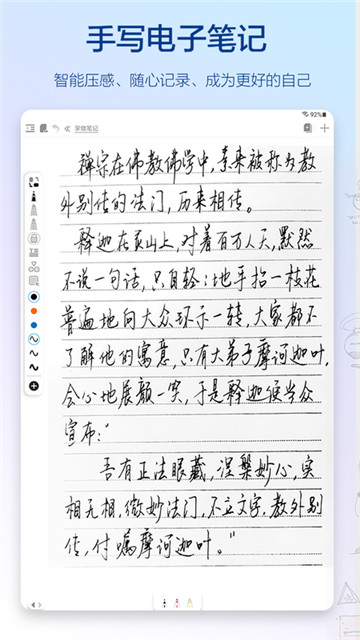 手写电子笔记
智能压感、随心记录、成为更好的自己
禅宗在佛教佛学中,素来被称为教
外别传的法门,历来相传。
释迦在灵山上,对着百万人天,默然
不说一句话,只自轻轻地手拈一枝花
普遍地向大众环示一转,大家都不
了解他的寓意,只有大弟子摩诃迦叶,
会心地展颜一笑,于是释迦便当众
宣布:“
吾有正法眼藏,涅槃妙心,实
相无相,微妙法门,不立文字,教外别
传,付嘱摩诃迦叶。”